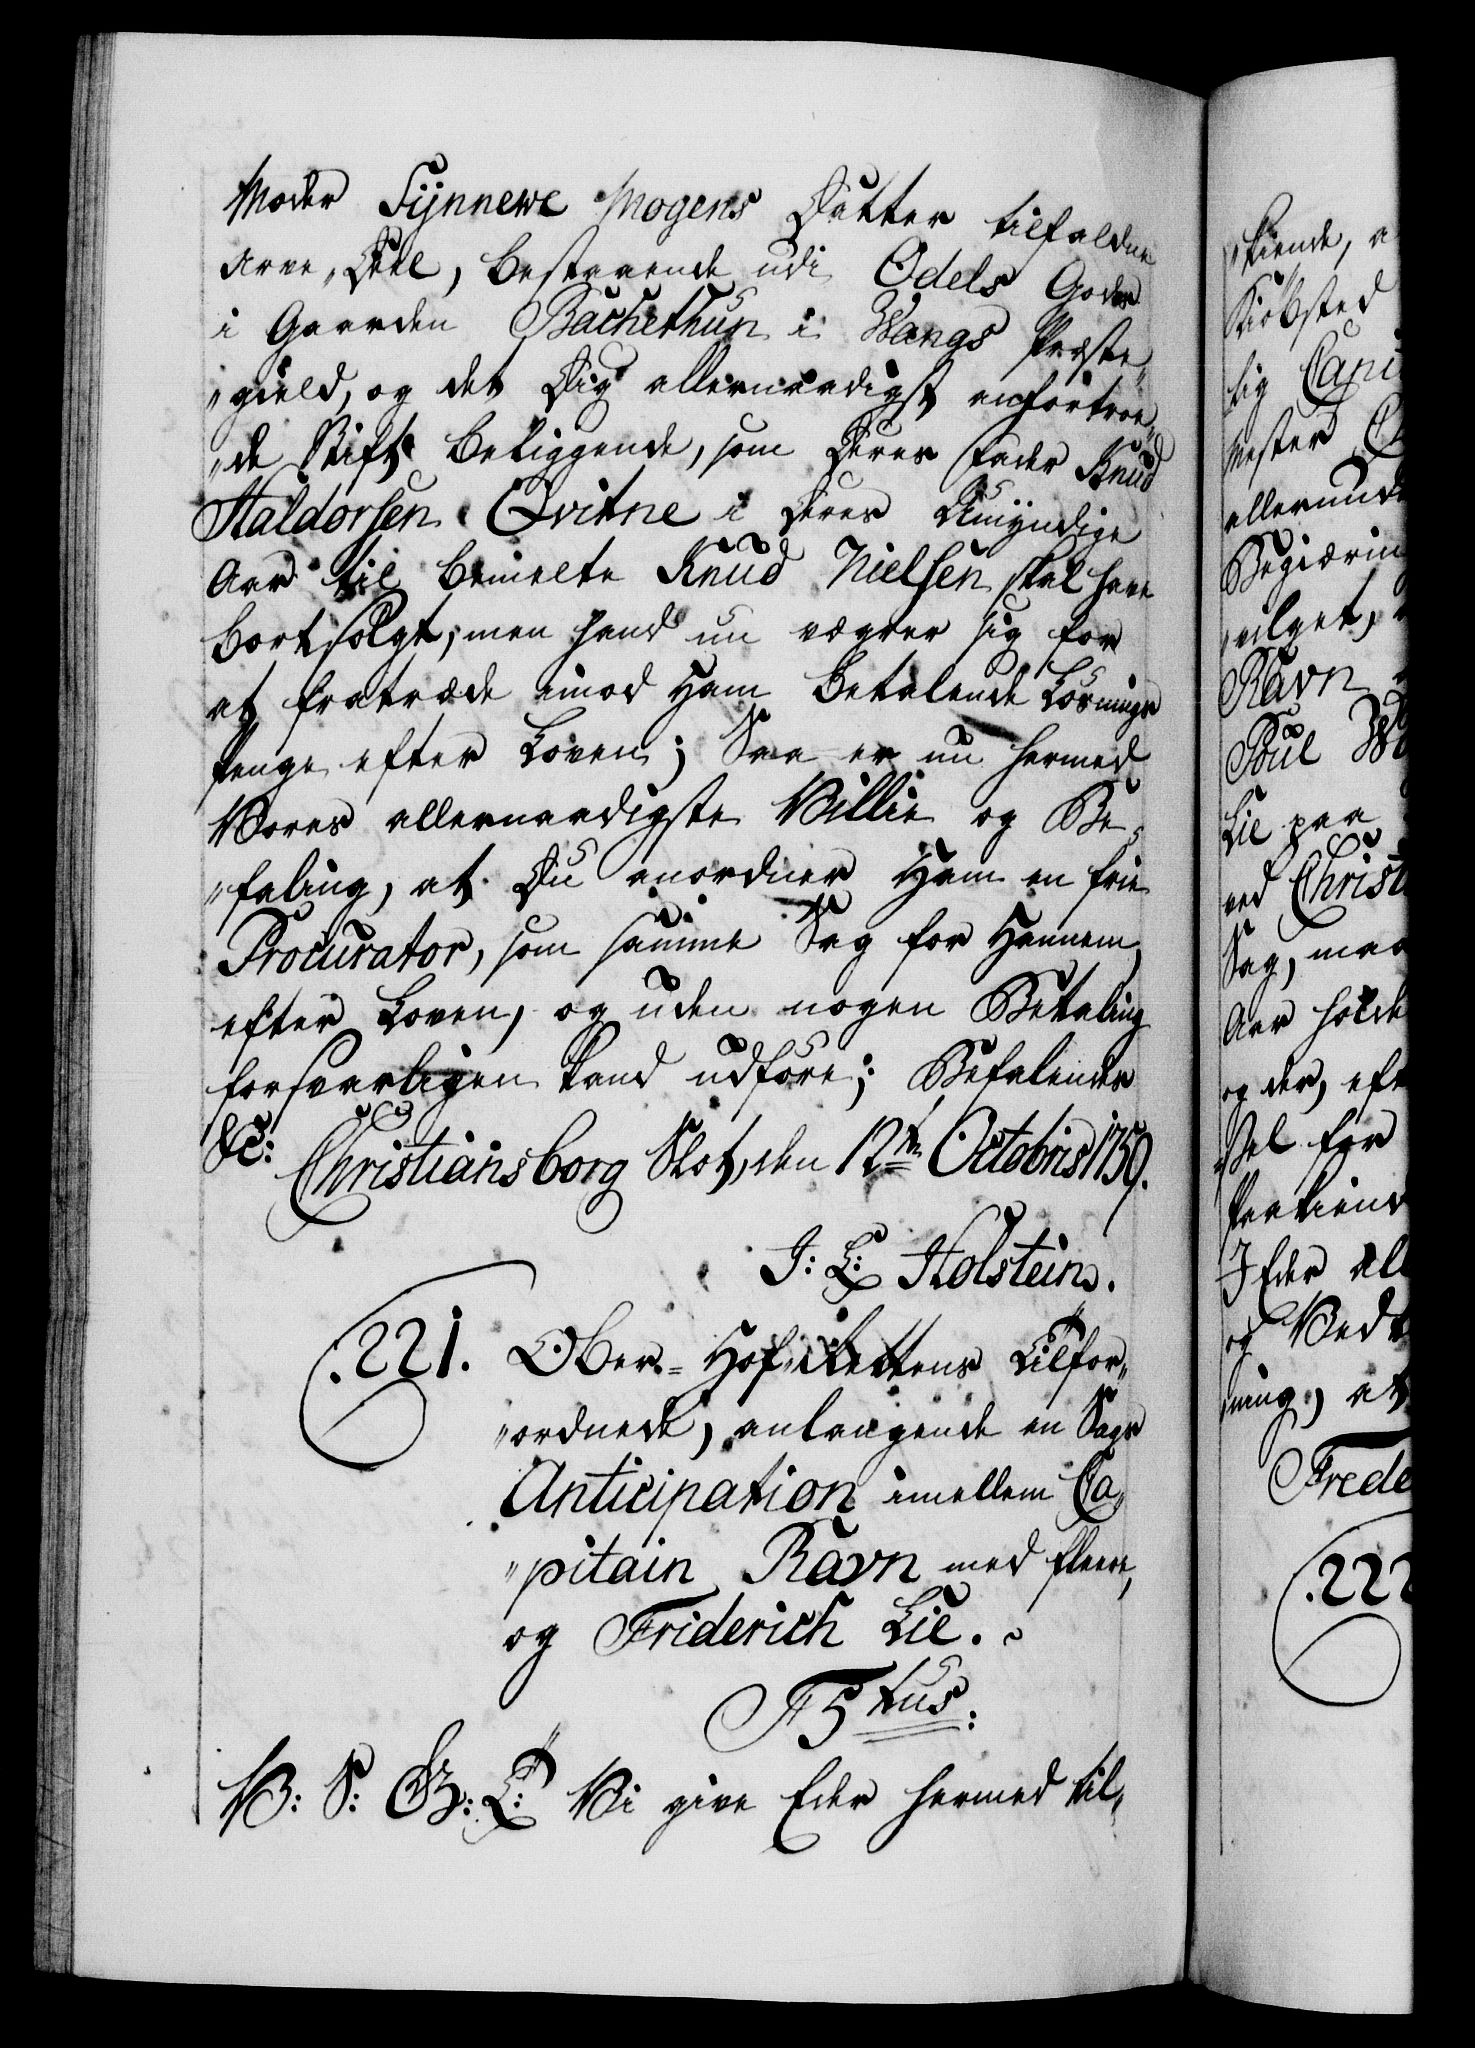 Moder Sÿnnewe Mogens Datter tilfaldne
Arve„Deel, bestaaende udi Odels Gods
i Gaarden Bachethun i Wangs Præste„
„gield, og det Dig allernaadigst anfortroe„
„de Stift beliggende, som Deres Fader Knud
Haldorsen Qvitne i Deres Umÿndige
Aar til bemelte Knud Nielsen skal have
bortsolgt, men hand nu vægrer sig for
at fratræde imod Ham betalende Løsnings
Penge efter Loven; Saa er nu hermed
Vores allernaadigste Villie og Be„
„faling, at Du anordner Ham en frie
Procurator, som samme Sag for Hannem,
efter Loven, og uden nogen Betaling
forsvarligen kand udføre; Befalendes
&c: Christiansborg Slot, den 12te Octobris 1759.
J: L: Holstein.
221. Ober-Hof„Rettens Tilfor„
„ordnede, anlangende en Sags
Anticipation imellem Ca„
„pitain Ravn med fleere,
og Friderich Lie.
F5tus:
V: S: G: T: Vi give Eder hermed til„
„kiende, a
Kiøbsted
lig Cani
Mester
allerund
Begiærin
„vilget,
Ravn
Poul W
Lie paa
ved Christ
Sag, maa
Aar holde
og der, eft
„sel for
Paakiend
J Eder all
og Vedk
„ning, at
Frede
222